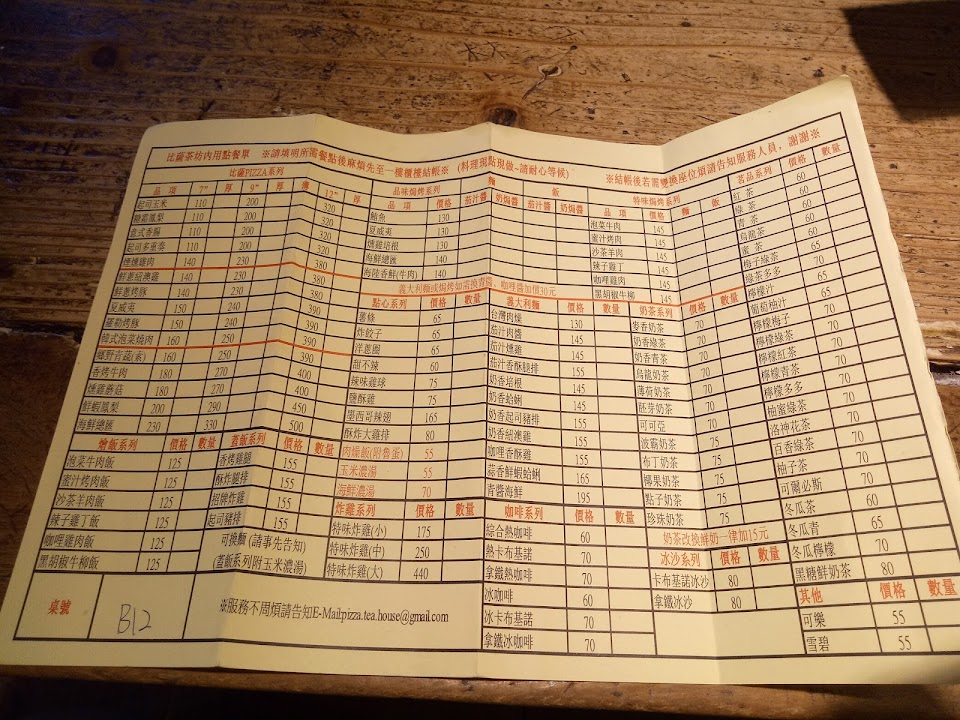 比薩茶坊內用點餐單 ※請填明所需餐點後麻煩先至一樓櫃檯結帳※ (料理現點現做~請耐心等候) ※結帳後若需變換座位煩請告知服務人員，謝謝※
比薩PIZZA系列
品項 7" 厚 9" 厚 薄 12" 厚
起司玉米 110 200 320
燻雞鳳梨 110 200 320
義式香腸 110 200 320
起司多重奏 110 200 320
燻雞肉 140 230 380
鮮蔥紐澳雞 140 230 380
鮮蔥烤豚 140 230 380
夏威夷 150 240 390
羅勒烤豚 150 240 390
韓式泡菜燒肉 160 250 390
鄉野青蔬(素) 160 250 390
香烤牛肉 180 270 400
燻雞蘑菇 180 270 400
鮮蝦鳳梨 200 290 450
海鮮總匯 230 330 500
品味焗烤系列 麵 飯
品項 價格 茄汁醬 奶焗醬 茄汁醬 奶焗醬
鮪魚 130
夏威夷 130
燻雞培根 130
海鮮總匯 140
海陸香鮮(牛肉) 140
特味焗烤系列
品項 價格 麵 飯
泡菜牛肉 145
蜜汁烤肉 145
沙茶羊肉 145
辣子雞丁 145
咖哩雞肉 145
黑胡椒牛柳 145
點心系列 價格 數量
薯條 65
炸餃子 65
洋蔥圈 65
甜不辣 60
辣味雞球 75
鹽酥雞 75
墨西哥辣翅 165
酥炸大雞排 80
肉燥飯(附魯蛋) 55
玉米濃湯 55
海鮮濃湯 70
炸雞系列 價格 數量
特味炸雞(小) 175
特味炸雞(中) 250
特味炸雞(大) 440
義大利麵 價格 數量
台灣肉燥 130
茄汁肉醬 145
茄汁燻雞 145
茄汁香酥腿排 155
奶香培根 145
奶香蛤蜊 145
奶香起司豬排 155
奶香紐澳雞 155
咖哩香酥雞 155
蒜香鮮蝦蛤蜊 165
青醬海鮮 195
咖啡系列 價格 數量
綜合熱咖啡 60
熱卡布基諾 70
拿鐵熱咖啡 70
冰咖啡 60
冰卡布基諾 70
拿鐵冰咖啡 70
奶茶系列 價格 數量
麥香奶茶 70
奶香綠茶 70
奶香青茶 70
烏龍奶茶 70
薄荷奶茶 70
胚芽奶茶 70
可可亞 70
波霸奶茶 75
布丁奶茶 75
椰果奶茶 75
點子奶茶 75
珍珠奶茶 75
奶茶改換鮮奶一律加15元
冰沙系列 價格 數量
卡布基諾冰沙 80
拿鐵冰沙 80
茗品系列 價格 數量
紅茶 60
綠茶 60
青茶 60
烏龍茶 60
蜜茶
梅子綠茶
綠茶多多
檸檬汁
葡萄柚汁
檸檬梅子
檸檬綠茶
檸檬紅茶
檸檬青茶
檸檬多多
柚蜜綠茶
洛神花茶
百香綠茶
柚子茶
可爾必斯
冬瓜茶 60
冬瓜青 65
冬瓜檸檬 70
黑糖鮮奶茶 80
其他 價格 數量
可樂 55
雪碧 55
燴飯系列 價格 數量
泡菜牛肉飯 125
蜜汁烤肉飯 125
沙茶羊肉飯 125
辣子雞丁飯 125
咖哩雞肉飯 125
黑胡椒牛柳飯 125
蓋飯系列 價格 數量
香烤雞腿 155
酥炸雞腿 155
招牌炸雞 155
起司豬排 155
可換麵(請事先告知)
(蓋飯系列附玉米濃湯)
桌號 B12
※服務不周煩請告知E-Mail:pizza.tea.house@gmail.com